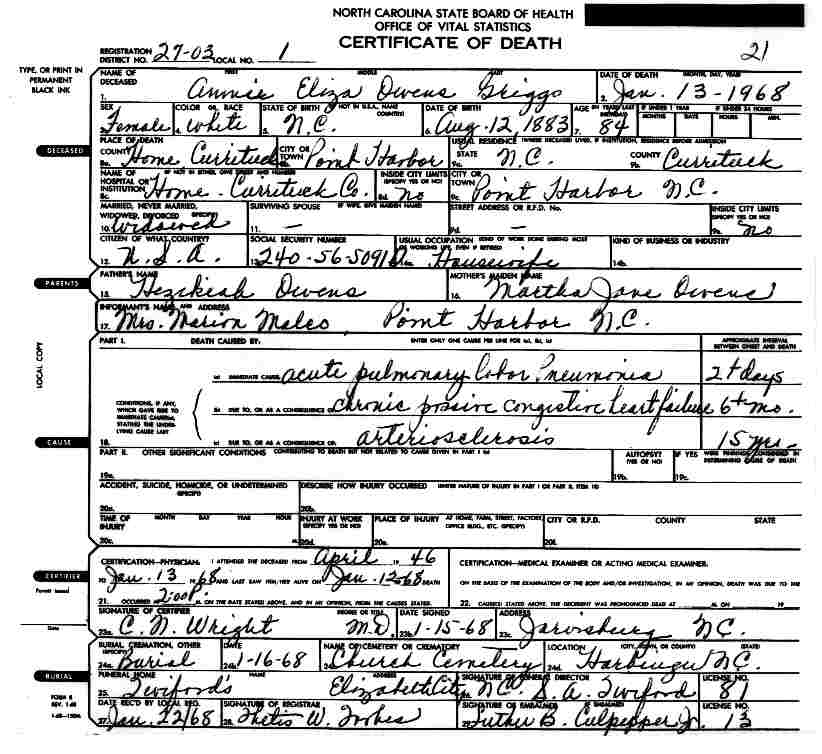 NORTH CAROLINA STATE BOARD OF HEALTH
OFFICE OF VITAL STATISTICS
CERTIFICATE OF DEATH
21
REGISTRATION DISTRICT NO. 27-03 LOCAL NO. 1
TYPE, OR PRINT IN PERMANENT BLACK INK
NAME OF DECEASED FIRST MIDDLE LAST DATE OF DEATH MONTH, DAY, YEAR
1. Annie Eliza Owens Griggs 2. Jan. 13-1968
SEX COLOR OR RACE STATE OF BIRTH (IF NOT IN U.S.A., NAME COUNTRY) DATE OF BIRTH AGE (IN YEARS LAST BIRTHDAY) IF UNDER 1 YEAR IF UNDER 24 HOURS
MONTHS DAYS HOURS MIN.
3. Female 4. white 5. N.C. 6. Aug. 12, 1883 7. 84
DECEASED
PLACE OF DEATH USUAL RESIDENCE (WHERE DECEASED LIVED, IF INSTITUTION, RESIDENCE BEFORE ADMISSION)
COUNTY 8a. Home Currituck CITY OR TOWN 8b. Point Harbor STATE 9a. N.C. COUNTY 9b. Currituck
NAME OF HOSPITAL OR INSTITUTION (IF NOT IN EITHER, GIVE STREET AND NUMBER) INSIDE CITY LIMITS (SPECIFY YES OR NO) CITY OR TOWN
8c. Home. Currituck Co. 8d. no 9c. Point Harbor N.C.
MARRIED, NEVER MARRIED, WIDOWED, DIVORCED (SPECIFY) SURVIVING SPOUSE IF WIFE, GIVE MAIDEN NAME STREET ADDRESS OR R.F.D. No. INSIDE CITY LIMITS (SPECIFY YES OR NO)
10. Widowed 11. — 9d. — 9e. no
CITIZEN OF WHAT COUNTRY? SOCIAL SECURITY NUMBER USUAL OCCUPATION (KIND OF WORK DONE DURING MOST OF WORKING LIFE, EVEN IF RETIRED) KIND OF BUSINESS OR INDUSTRY
12. U.S.A. 13. 240-56-5091 14a. Housewife 14b.
PARENTS
FATHER'S NAME MOTHER'S MAIDEN NAME
15. Hezikiah Owens 16. Martha Jane Owens
INFORMANT'S NAME AND ADDRESS
17. Mrs. Marion Point Harbor N.C.
LOCAL COPY
PART I. DEATH CAUSED BY: ENTER ONLY ONE CAUSE PER LINE FOR (a), (b), (c) APPROXIMATE INTERVAL BETWEEN ONSET AND DEATH
(a) IMMEDIATE CAUSE acute pulmonary lobar Pneumonia 2+ days
CONDITIONS, IF ANY, WHICH GAVE RISE TO IMMEDIATE CAUSE(a), STATING THE UNDERLYING CAUSE LAST
(b) DUE TO, OR AS A CONSEQUENCE OF chronic passive congestive heart failure 6+ mo.
CAUSE
18. (c) DUE TO, OR AS A CONSEQUENCE OF arteriosclerosis 15 yrs-
PART II. OTHER SIGNIFICANT CONDITIONS CONTRIBUTING TO DEATH BUT NOT RELATED TO CAUSE GIVEN IN PART I (a) AUTOPSY? (YES OR NO) IF YES WERE FINDINGS CONSIDERED IN DETERMINING CAUSE OF DEATH
19a. 19b. 19c.
ACCIDENT, SUICIDE, HOMICIDE, OR UNDETERMINED (SPECIFY) DESCRIBE HOW INJURY OCCURRED (ENTER NATURE OF INJURY IN PART I OR PART II, ITEM 18)
20a. 20b.
TIME OF INJURY MONTH DAY YEAR HOUR INJURY AT WORK (SPECIFY YES OR NO) PLACE OF INJURY AT HOME, FARM, STREET, FACTORY, OFFICE BLDG., ETC. (SPECIFY) CITY OR R.F.D. COUNTY STATE
20c. 20d. 20e. 20f.
CERTIFIER
CERTIFICATION-PHYSICIAN: I ATTENDED THE DECEASED FROM April 19 46 CERTIFICATION-MEDICAL EXAMINER OR ACTING MEDICAL EXAMINER.
TO Jan. 13 19 68 AND LAST SAW HIM/HER ALIVE ON Jan. 12-68 DEATH ON THE BASIS OF THE EXAMINATION OF THE BODY AND/OR INVESTIGATION, IN MY OPINION, DEATH WAS DUE TO THE
21. OCCURRED AT 2:00 P. M. ON THE DATE STATED ABOVE, AND IN MY OPINION, FROM THE CAUSES STATED. 22. CAUSE(S) STATED ABOVE. THE DECEDENT WAS PRONOUNCED DEAD AT M. ON 19
Permit Issued
Date
SIGNATURE OF CERTIFIER DEGREE OR TITLE DATE SIGNED ADDRESS
23a. C. N. Wright M.D. 23b. 1-15-68 23c. Jarvisburg N.C.
BURIAL, CREMATION, OTHER (SPECIFY) DATE NAME OF CEMETERY OR CREMATORY LOCATION (CITY, TOWN, OR COUNTY) (STATE)
24a. Burial 24b. 1-16-68 24c. Church Cemetery 24d. Harbinger N.C.
BURIAL
FUNERAL HOME NAME ADDRESS SIGNATURE OF FUNERAL DIRECTOR LICENSE NO.
25. Twiford's Elizabeth City N.C. 26. S. A. Twiford 81
FORM 8
REV. 1-68
DATE REC'D BY LOCAL REG. SIGNATURE OF REGISTRAR SIGNATURE OF EMBALMER IF EMBALMED LICENSE NO.
27. Jan. 22/68 28. Thetis W. Forbes 29. Luther B. Culpepper Jr. 13